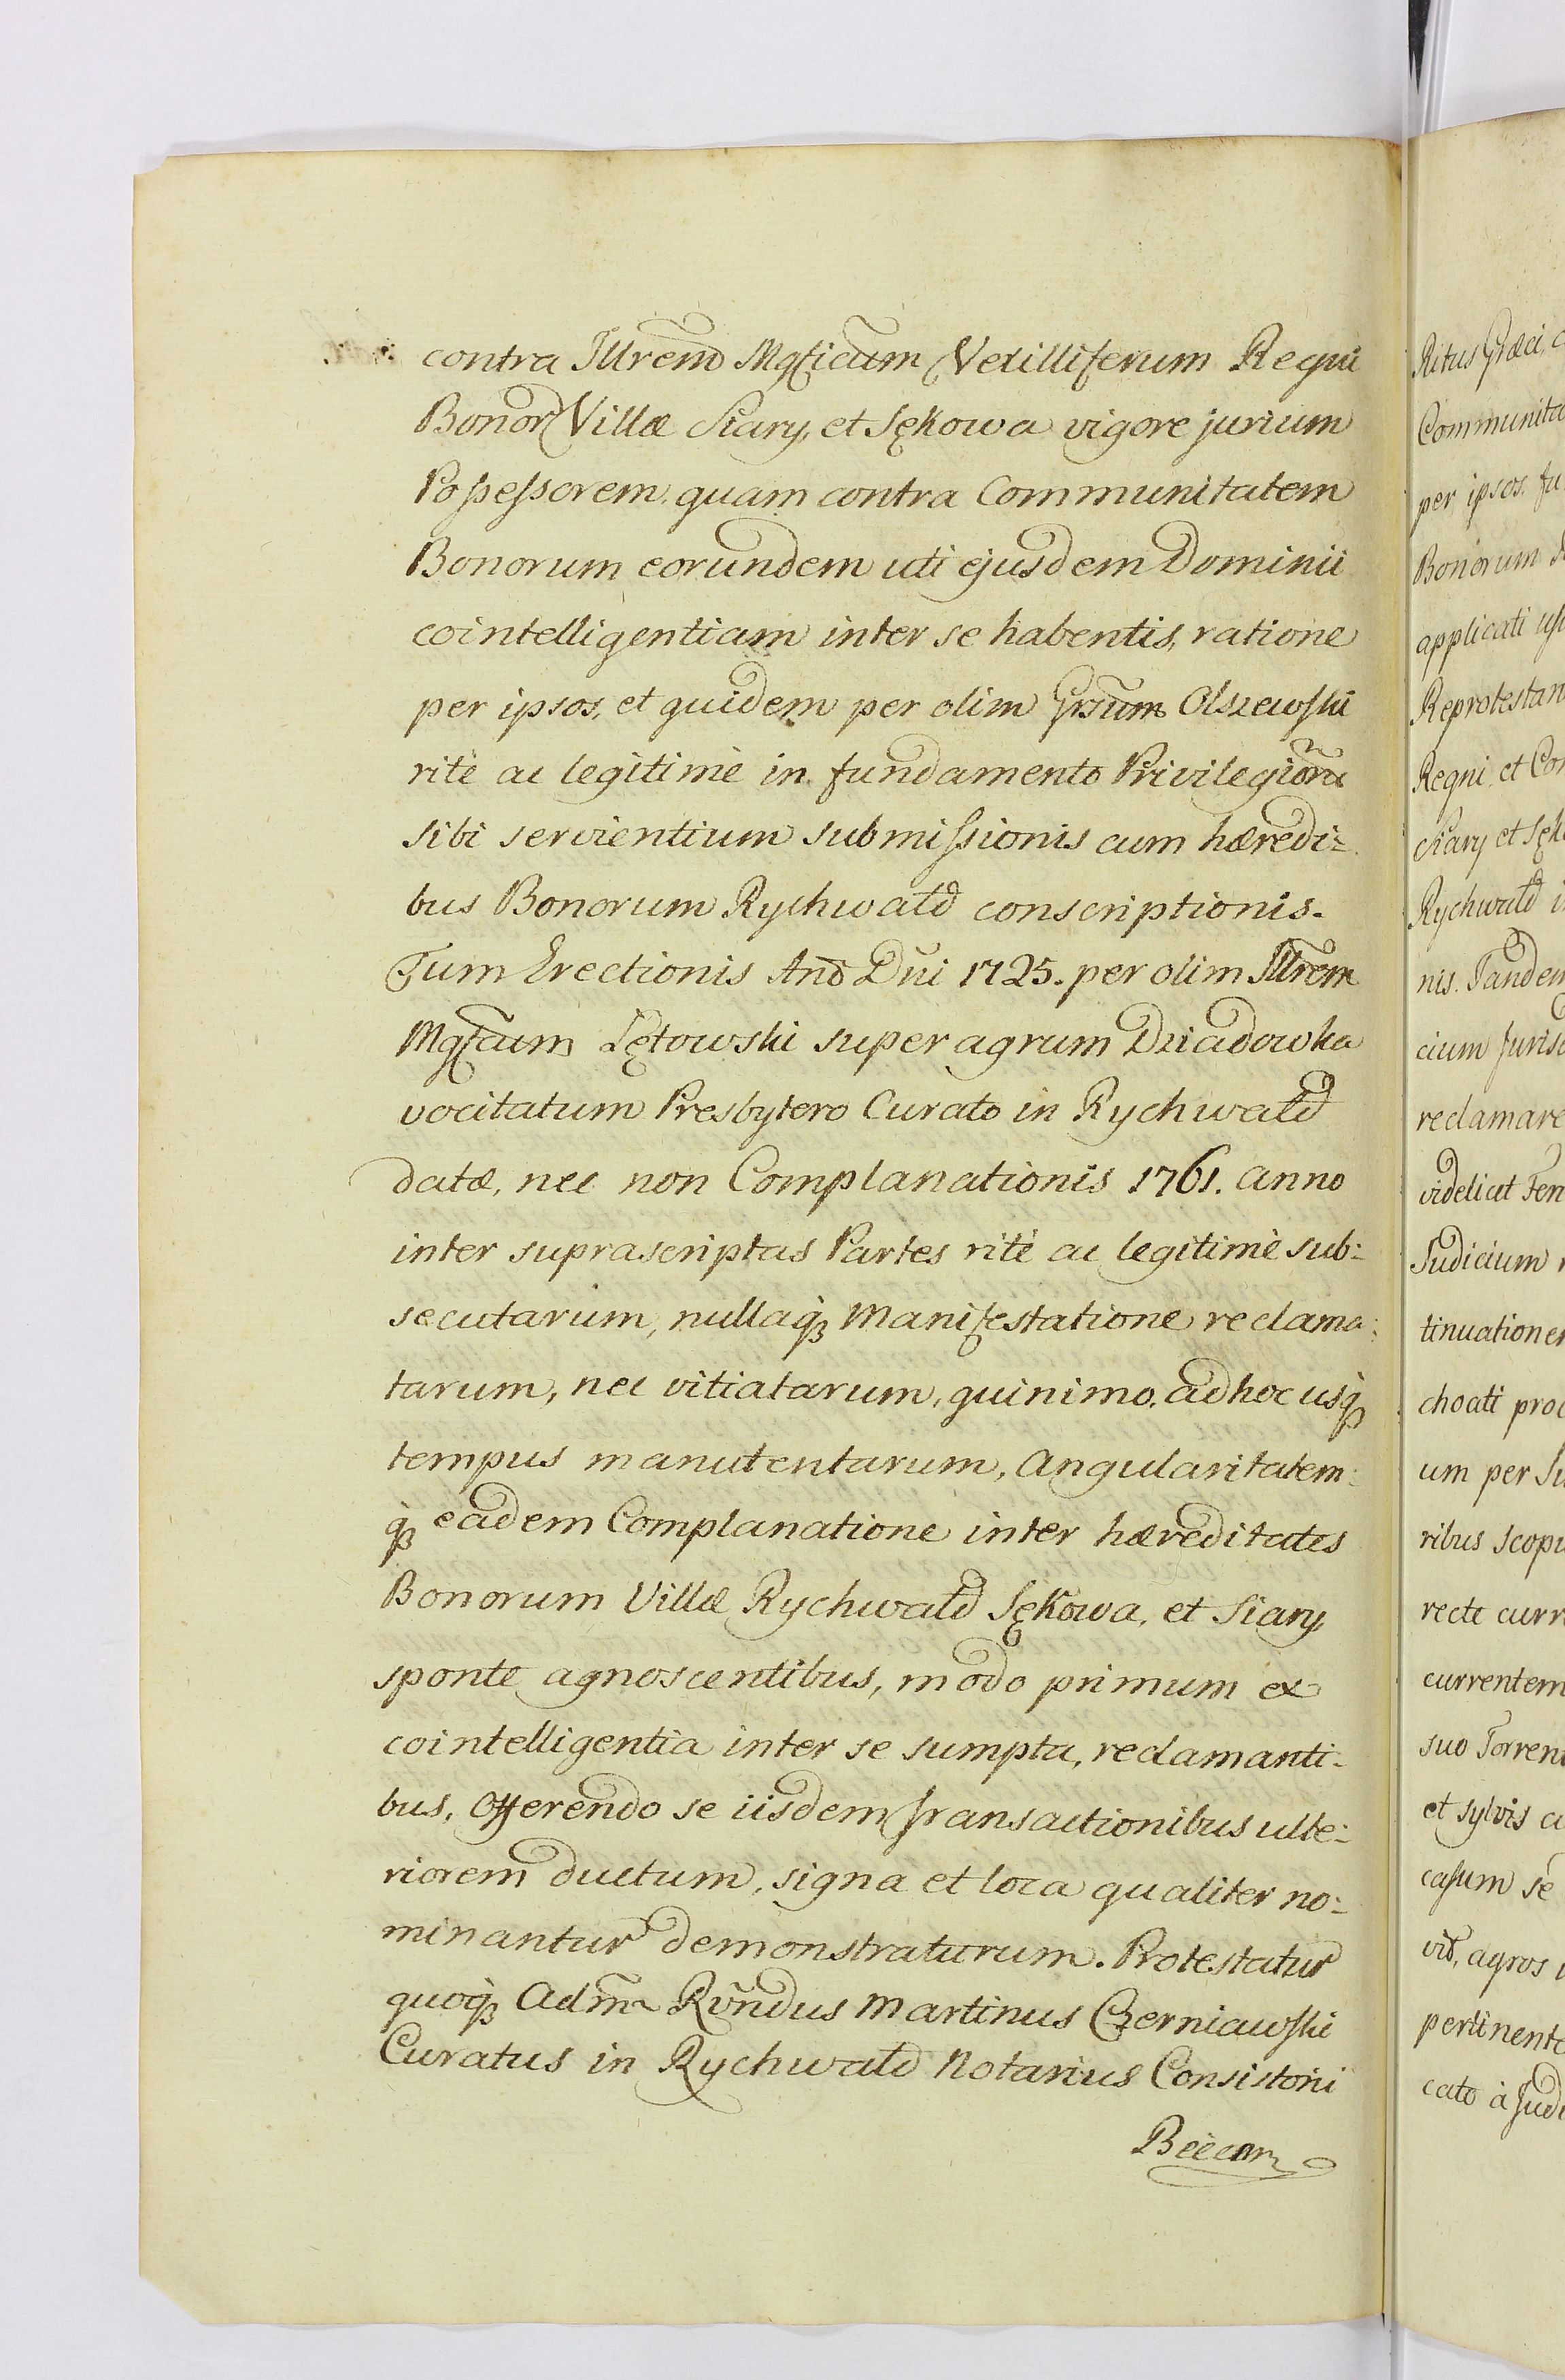 contra Illrem̃ Mgficum̃ Vexilliferum Regni
Bonor Villæ Siary, et Sękowa vigore jurium
Possessorem, quam contra Communitatem
Bonorum eorundem uti ejusdem Dominii
cointelligentiam inter se habentis, ratione
per ipsos, et quidem per olim Grsum̃ Olszewski
ritè ac legitimè in fundamento Privilegiorũ
sibi servientium submissionis cum hæredi=
bus Bonorum Rychwałd conscriptionis.
Tum Erectionis Anõ Dñi 1725. per olim Illrem̃
Mgfcum̃ Łętowski super agrum Dziadowka
vocitatum Presbytero Curato in Rychwałd
datæ, nec non Complanationis 1761. anno
inter suprascriptas Partes ritè ac legitimè sub=
secutarum, nullaq̀ꝫ Manifestatione reclama=
tarum, nec vitiatarum, quinimo, ad hoc usq̀ꝫ
tempus manutentarum, Angularitatem=
q̀ꝫ eadem Complanatione inter hæreditates
Bonorum Villæ Rychwałd Sękowa, et Siary,
sponte agnoscentibus, modo primum ex
cointelligentia inter se sumpta, reclamanti=
bus, Offerendo se iisdem Transactionibus ulte=
riorem ductum, signa et loca qualiter no=
minantur demonstraturum. Protestatur
quoq̀ꝫ Adm̃ Rṽndus Martinus Czerniawski
Curatus in Rychwałd Notarius Consistorii
Biecen
Ritus Græci,
Communita
per ipsos, fu
Bonorum
applicati
Reprotestan
Regni, et Con
Siary et Sęk
Rychwałd i
nis. Tandem
cium Juris
reclamare
videlicet
Judicium
tinuationem
choati proc
um per
ribus scop
recte curr
currentem
suo Torren
et sylvis
casum se
vit, agros
pertinente
cato à Judi